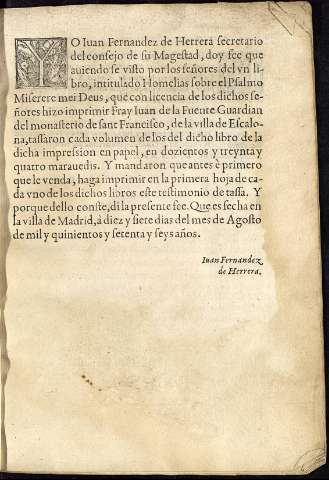 YO Iuan Fernandez de Herrera secretario
del consejo de su Magestad, doy fee que
auiendose visto por los señores del vn li-
bro, intitulado Homelias sobre el Psalmo
Miserere mei Deus, que con licencia de los dichos se-
ñores hizo imprimir Fray Iuan de la Fuente Guardian
del monasterio de sant Francisco, de la villa de Escalo-
na, tassaron cada volumen de los del dicho libro de la
dicha impression en papel, en dozientos y treynta y
quatro marauedis. Y mandaron que antes è primero
que le venda, haga imprimir en la primera hoja de ca-
da vno de los dichos libros este testimonio de tassa. Y
porque dello conste, di la presente fee. Que es fecha en
la villa de Madrid, à diez y siete dias del mes de Agosto
de mil y quinientos y setenta y seys años.
Iuan Fernandez
de Herrera.